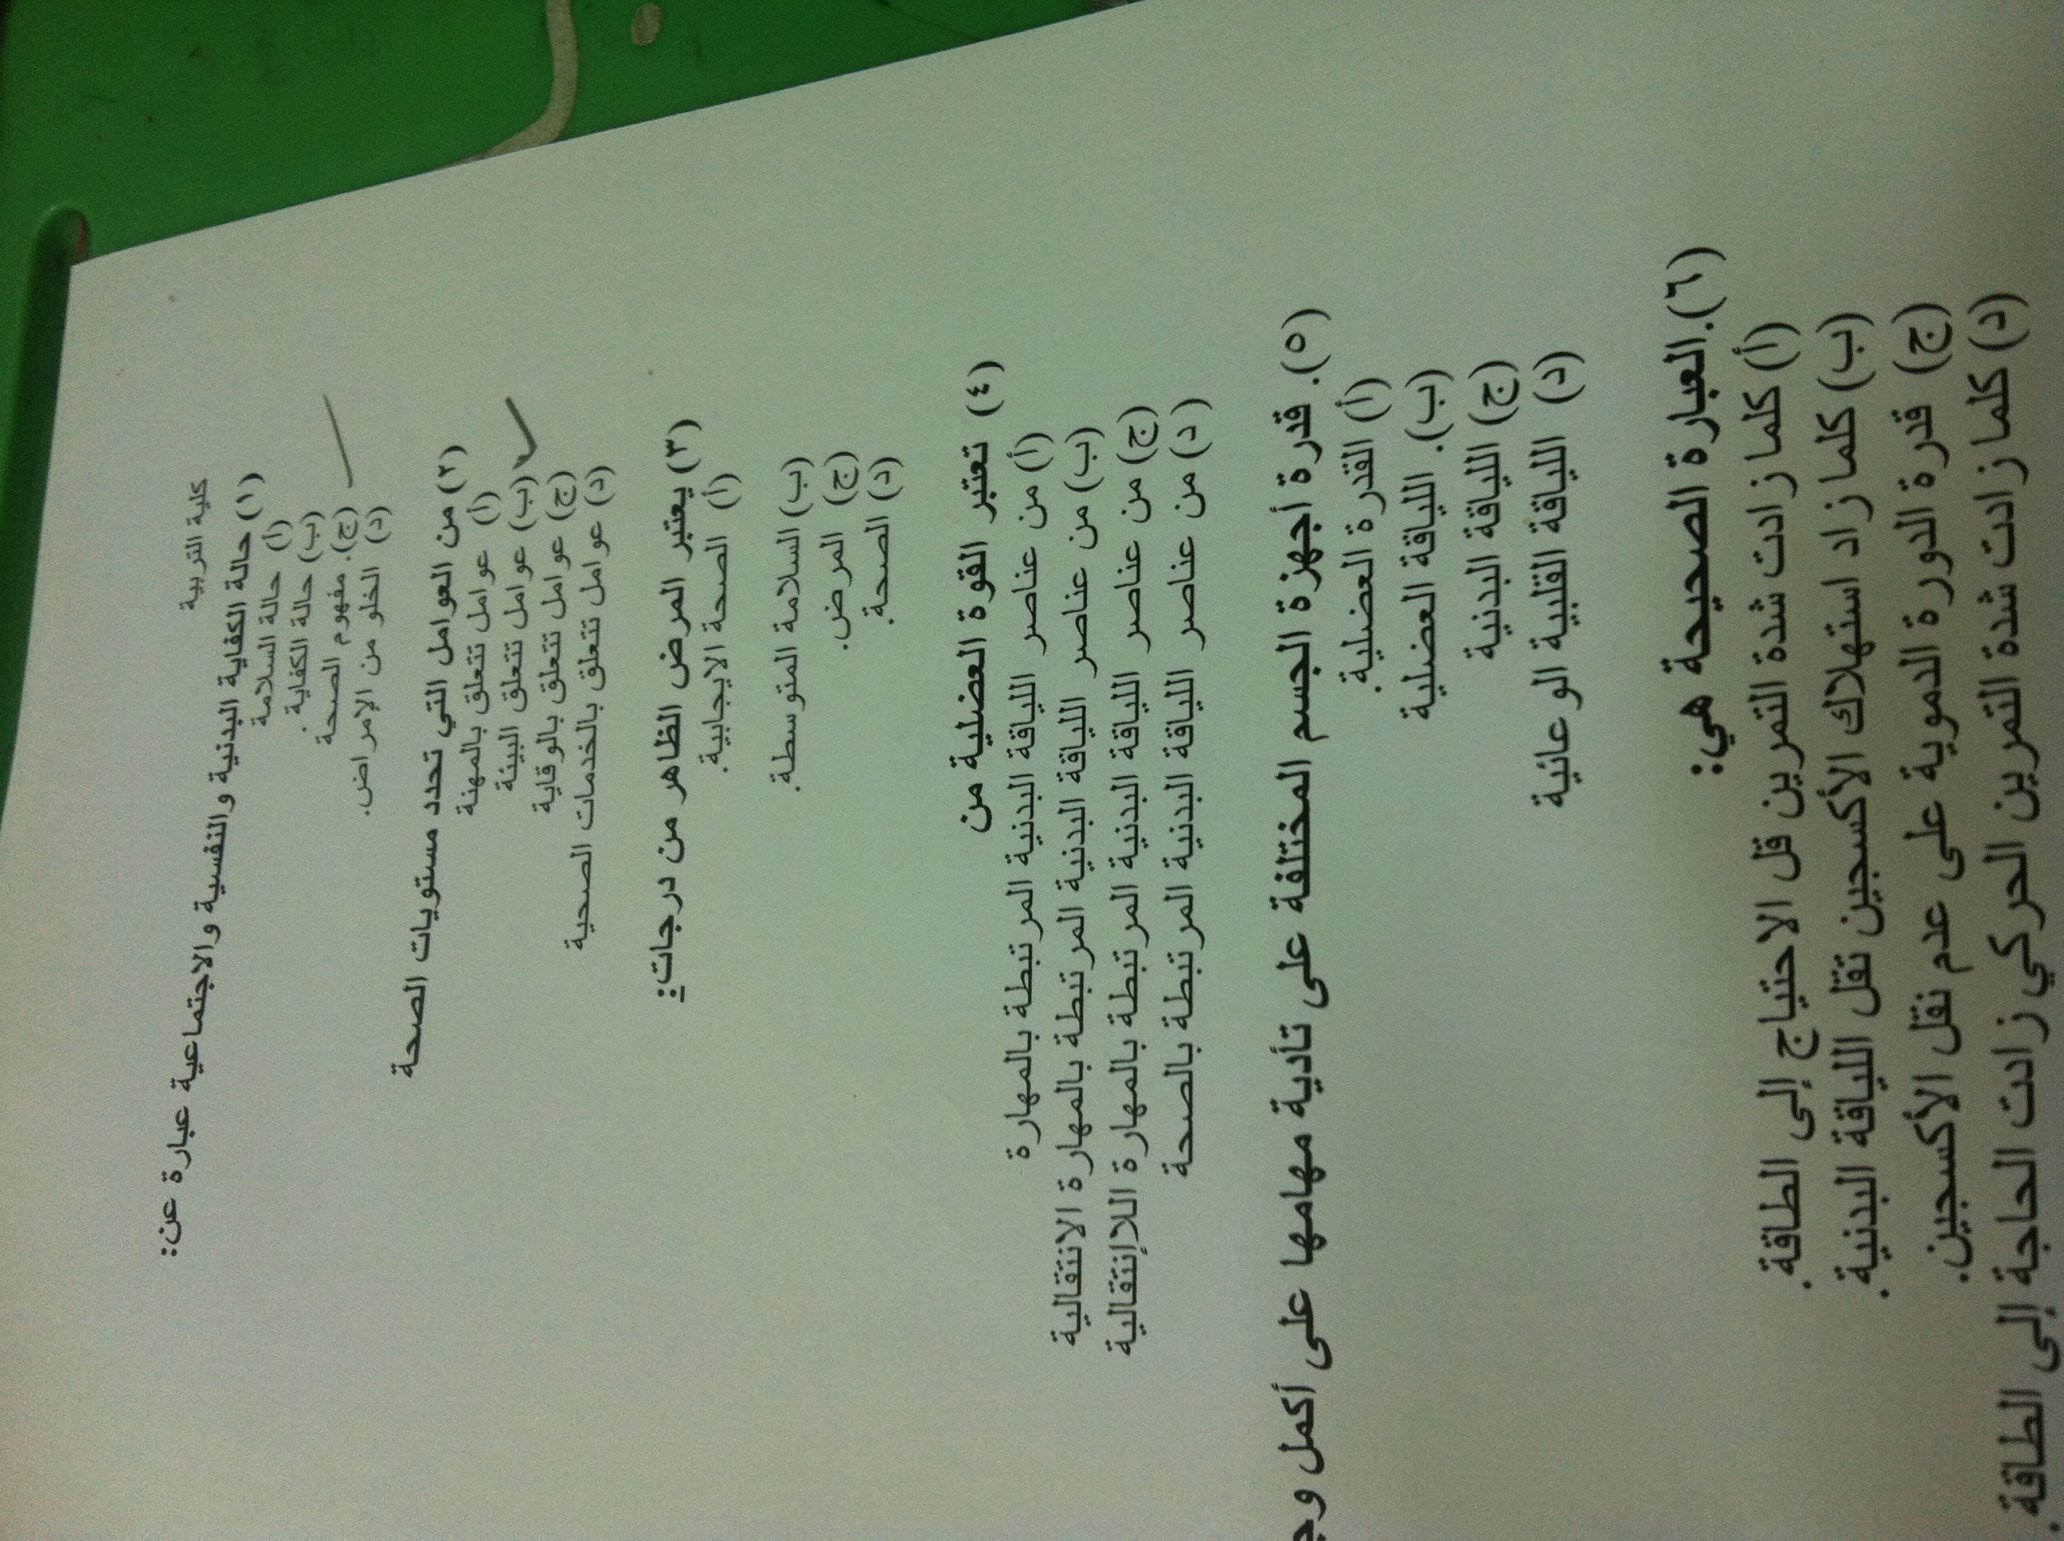 كلية التربية
(١) حالة الكفاية البدنية والنفسية والاجتماعية عبارة عن:
(أ) حالة السلامة
(ب) حالة الكفاية .
(ج). مفهوم الصحة
(د) الخلو من الإمراض.
(٢) من العوامل التي تحدد مستويات الصحة
(أ) عوامل تتعلق بالمهنة
(ب) عوامل تتعلق البيئة
(ج) عوامل تتعلق بالوقاية
(د) عوامل تتعلق بالخدمات الصحية
(٣) يعتبر المرض الظاهر من درجات:
(أ) الصحة الايجابية.
(ب) السلامة المتوسطة.
(ج) المرض.
(د) الصحة.
(٤) تعتبر القوة العضلية من
(أ) من عناصر اللياقة البدنية المرتبطة بالمهارة
(ب) من عناصر اللياقة البدنية المرتبطة بالمهارة الانتقالية
(ج) من عناصر اللياقة البدنية المرتبطة بالمهارة اللاإنتقالية
(د) من عناصر اللياقة البدنية المرتبطة بالصحة
(٥). قدرة أجهزة الجسم المختلفة على تأدية مهامها على أكمل وج
(أ) القدرة العضلية.
(ب). اللياقة العضلية
(ج) اللياقة البدنية
(د) اللياقة القلبية الوعائية
(٦).العبارة الصحيحة هي:
(أ) كلما زادت شدة التمرين قل الاحتياج إلى الطاقة.
(ب) كلما زاد استهلاك الأكسجين تقل اللياقة البدنية.
(ج) قدرة الدورة الدموية على عدم نقل الأكسجين.
(د) كلما زادت شدة التمرين الحركي زادت الحاجة إلى الطاقة.